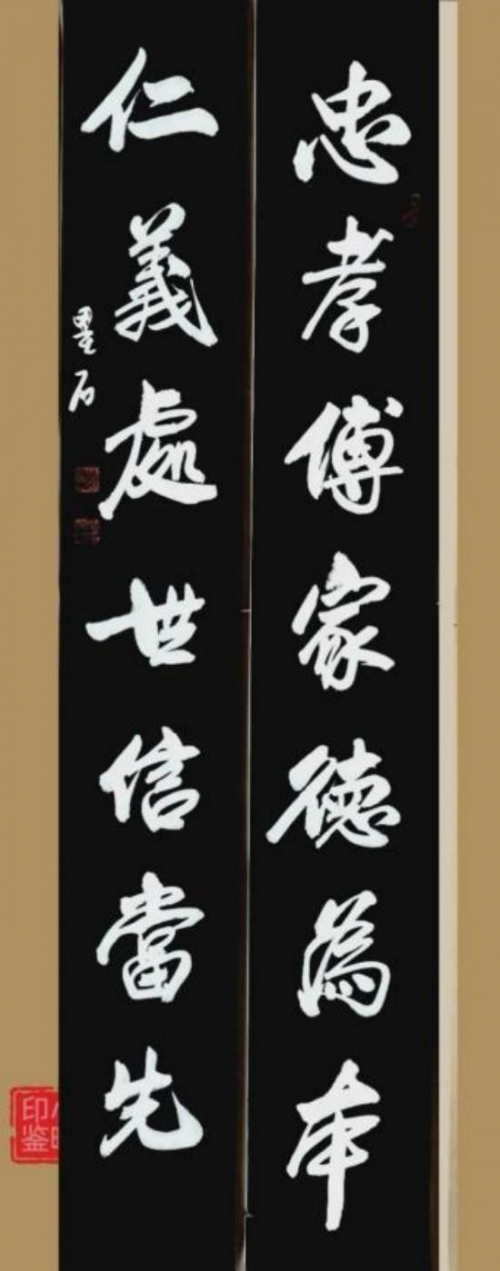 忠孝傳家德為本
仁義處世信當先
墨石
印鉴